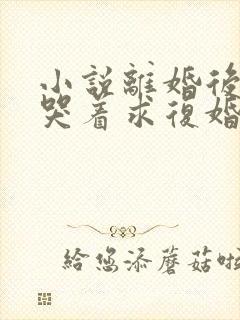 小說離婚後
哭着求復婚
給您添蘑菇啦